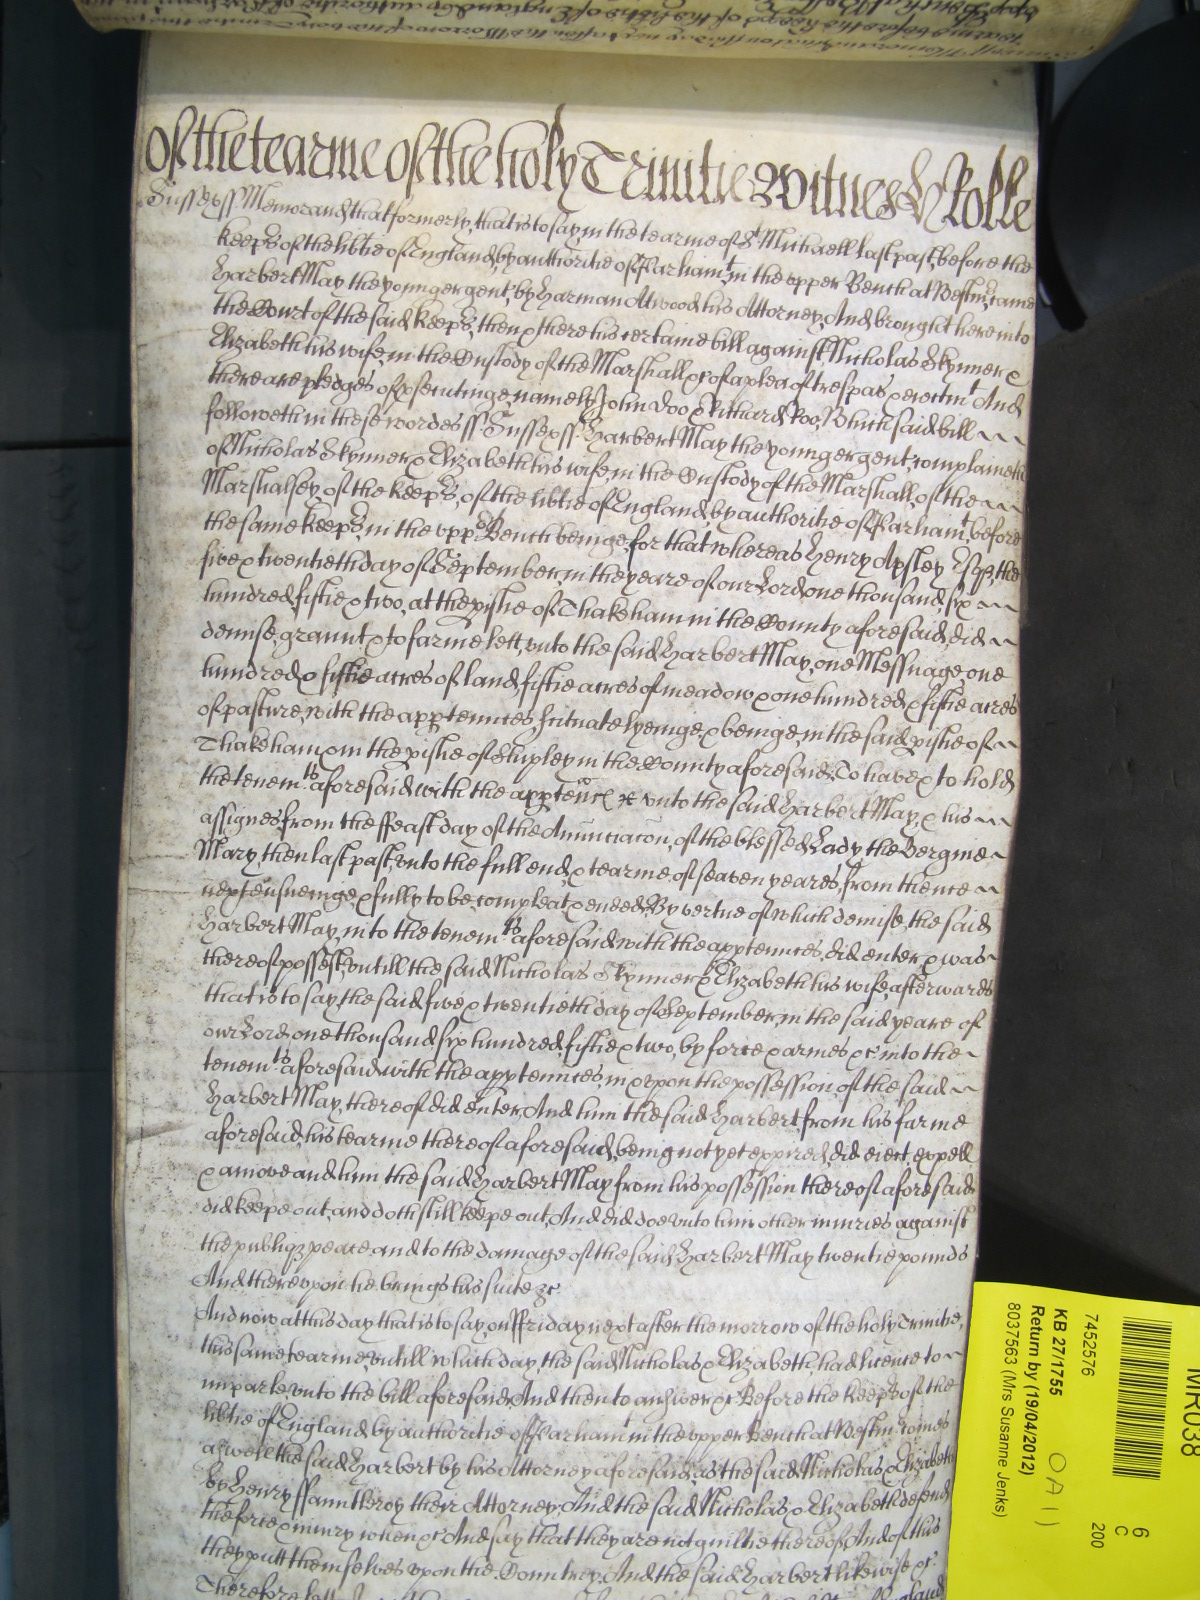 of the tearme of the holy Trinitie Witnes H Rolle
Sussex ss Memorand that formerly, that is to say, in the tearme of St Michaell last past, before the
keeps of the libtie of England, by authoritie of Parliamt, in the upper Bench at Westm, came
Harbert May the younger gent, by Harman Atwood his Attorney, And brought here into
the Court of the said keeps, then & there his certaine bill against Nicholas Skynner &
Elizabeth his wife, in the Custody of the Marshall &c of a plea of trespas & eiectmt And
there are pledges of psecutinge, namely John Doo & Richard Roo, Which said bill
followeth in these wordes ss Sussex ss Harbert May the younger gent, complaineth
of Nicholas Skynner & Elizabeth his wife, in the Custody of the Marshall, of the
Marshalsey, of the keeps, of the libtie of England, by authoritie of Parliamt, before
the same keeps, in the uppr Bench beinge, for that whereas Henry Apsley Esqr, the
five & twentieth day of September, in the yeare of our Lord, one thousand, six
hundred, fiftie & two, at the pishe of Thakeham in the County aforesaid, did
demise, graunt & to farme lett, unto the said Harbert May, one Messuage one
hundred & fiftie acres of land, fiftie acres of meadow & one hundred & fiftie acres
of pasture, with the apptennces, scituate lyeinge & beinge, in the said pishe of
Thakeham & in the pishe of Shipley in the County aforesaid, To have & to hold
the tenemts aforesaid with the apptennc unto the said Harbert May, & his
assignes, from the ffeast day of the Anunciacon, of the blessed Lady the Vergine
Mary, then last past, unto the full end, & tearme, of seaven yeares, from thence
next ensueinge, & fully to be, compleat & ended, By vertue of which demise, the said
Harbert May, into the tenemts aforesaid with the apptennces, did enter & was
thereof possest, untill the said Nicholas Skynner & Elizabeth his wife, afterwards
that is to say, the said five & twentieth day of September, in the said yeare of
our Lord, one thousand, six hundred, fiftie & two, by force & armes &c into the
tenemts aforesaid with the apptennces, in & upon the possession, of the said
Harbert May, thereof did enter, And him the said Harbert, from his farme
aforesaid, his tearme thereof aforesaid, being not yet expired, did eiect, expell
& amove and him the said Harbert May from his possession thereof aforesaid
did keepe out, and doth still keepe out, And did doe unto him other iniuries against
the publiq peace and to the damage of the said Harbert May twentie pounds
And thereupon he brings his suite &c
And now at this day, that is to say, on ffriday next after the morrow of the holy Trinitie,
this same tearme, untill which day, the said Nicholas & Elizabeth, had licence to
imparle unto the bill aforesaid, And then to answer &c Before the keeps of the
libtie of England by authoritie of Parliamt in the upper Bench at Westm comes
aswell the said Harbert by his Attorney aforesaid, as the said Nicholas & Elizabeth
by Henry ffauntleroy their Attorney, And the said Nicholas & Elizabeth defend
the force & iniury when &c And say that they are not guiltie thereof, And of this
they putt themselves upon the Country, And the said Harbert likewise &c
Therefore lett
MR038
7452576
6
C
200
KB 27/1755
OA 1
Return by (19/04/2012)
8037563 (Mrs Susanne Jenks)